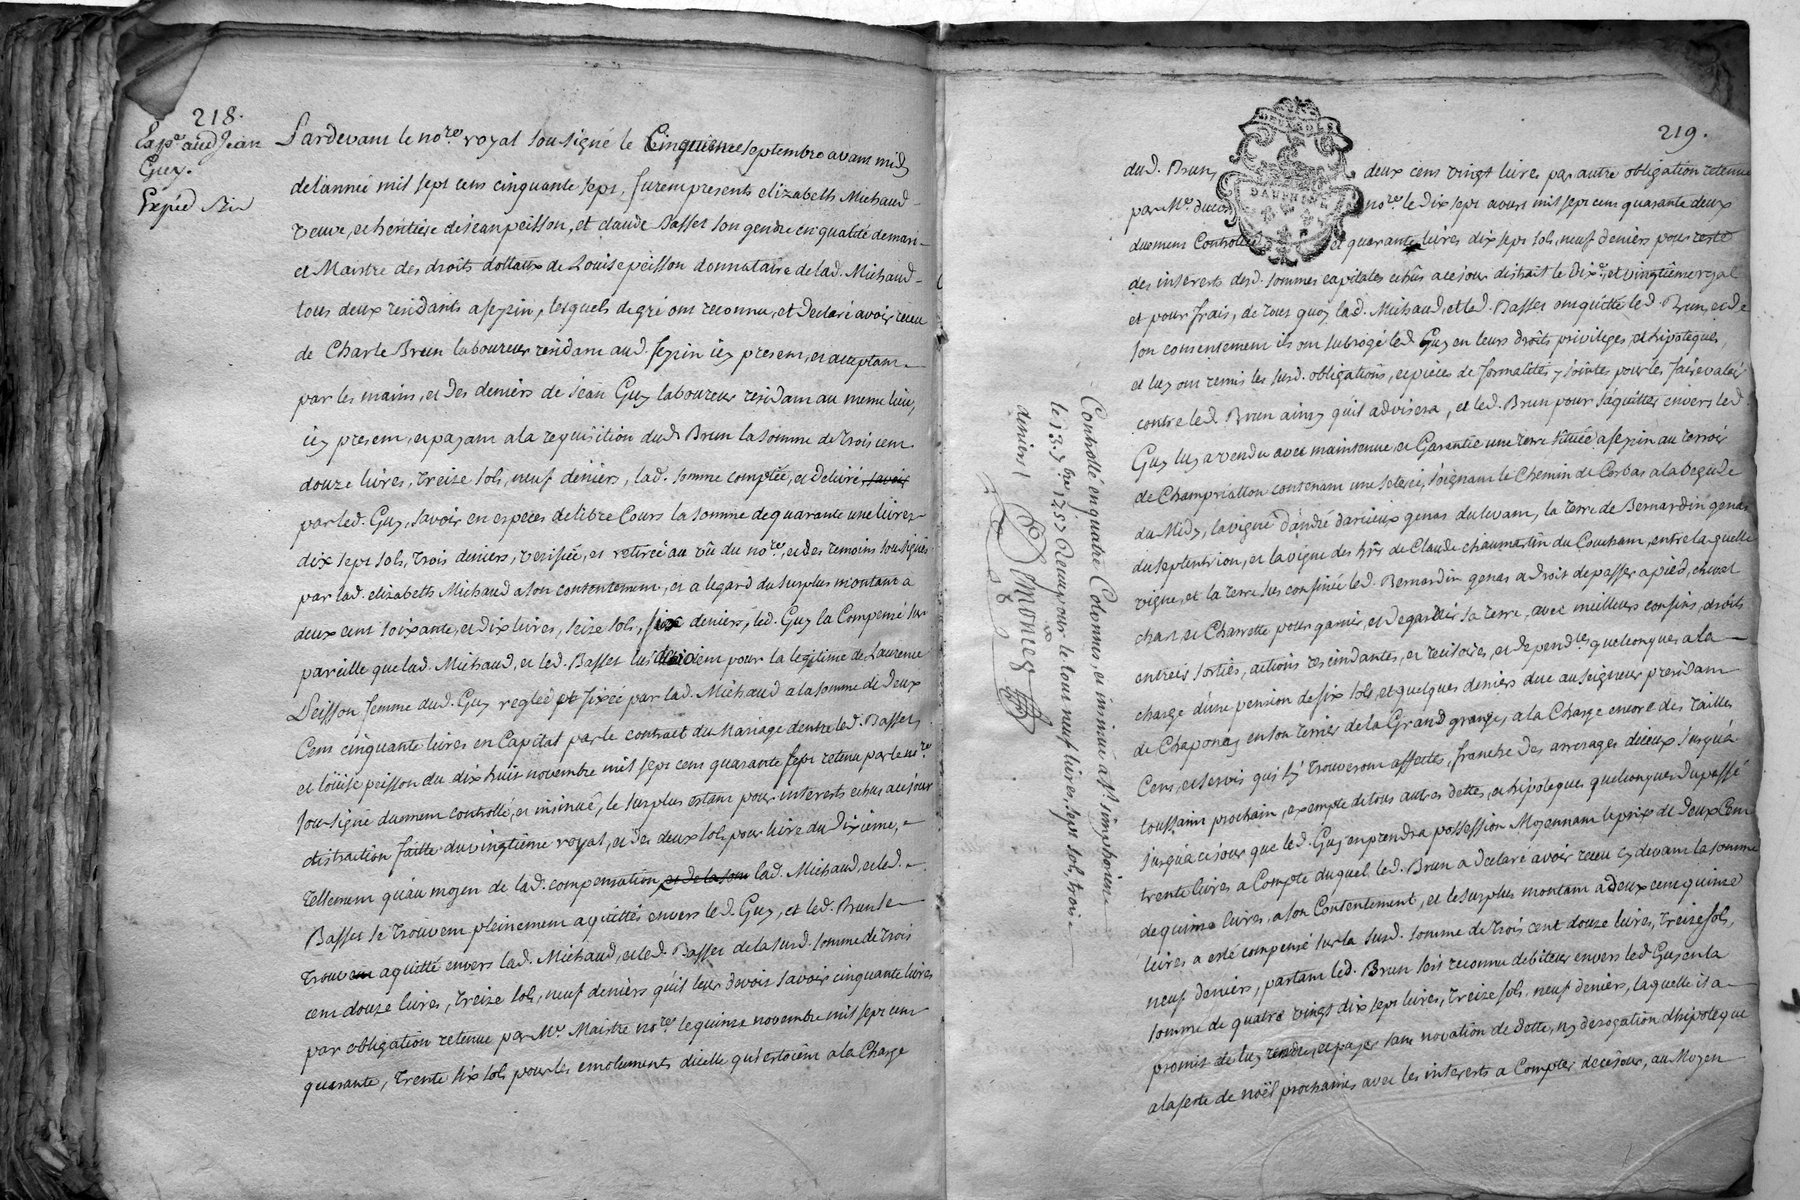 218.
Exp.e aud Jean
Guy.
Expié
Pardevant le no.re royal sousigné le Cinquieme septembre avant midy
de l'année mil sept cens cinquante sept, furent presents elizabeth Michaud
veuve, et héritiére de jean peisson, et claude Basset son gendre en qualité de mari
et Maistre des droits dottaux de Louise peisson donnataire de lad. Michaud
tous deux residants a feyzin, lesquels de gré ont reconnu, et declaré avoir receu
de Charle Brun laboureur residant aud. feyzin icy present, et acceptant
par les mains, et des deniers de jean Guy laboureur residant au meme lieu,
icy present, et payant a la requisition dud Brun la somme de trois cent
douze livres, treize sols, neuf deniers, lad. somme comptée, et delivré, savoir
par led. Guy, savoir en espéces de libre Cours la somme de quarante une livres
dix sept sols, trois deniers, verifiée, et retirée au vû du no.re, et des temoins sousignés
par lad. elizabeth Michaud a son contentement, et a legard du surplus montant a
deux cent soixante, et dix livres, seize sols, six deniers, led. Guy la Compensé sur
pareille que lad. Michaud, et led. Basset lui devoient pour la legitime de Laurence
Peisson femme dud. Guy reglée et fixée par lad. Michaud a la somme de deux
Cent cinquante livres en Capital par le contrat du Mariage dentre led. Basset,
et loüise peisson du dix huit novembre mil sept cent quarante sept retenu par le no.re
sousigné duement controllé, et insinué, le surplus estant pour interests echus a ce jour
distraction faitte du vingtième royal, et des deux sols pour livre du dixième,
tellement qu'au moyen de lad. compensation et de la som lad. Michaud, et led.
Basset se trouvent pleinement aquittés envers led. Guy, et led. Brun se
trouvent aquitté envers lad. Michaud, et led. Basset de la susd. somme de trois
cent douze livres, treize sols, neuf deniers qu'il leur devoit savoir cinquante livres
par obligation retenue par M.e Maistre no.re le quinze novembre mil sept cent
quarante, trente six sols pour les emoluments dicelle qui estoient a la Charge
219.
DAUPHINE
dud. Brun, deux cens vingt livres par autre obligation retenue
par M.e no.re le dix sept aoust mil sept cent quarante deux
duement Controllée et quarante livres dix sept sols, neuf deniers pour reste
des interests desd. sommes capitales echûs a ce jour distrait le dix.e, et vingtième royal
et pour frais, de tout quoy lad. Michaud, et led. Basset ont quitté led. Brun, et de
son consentement ils ont subrogé led Guy en leurs droits privileges, et hipoteques,
et luy ont remis les susd. obligations, et piéces de formalités y jointes pour les faire valoir
contre led. Brun ainsy quil advisera, et led. Brun pour s'aquitter envers led.
Guy luy a vendu avec maintenue, et Garantie une terre située a feyzin au terroir
de Champriallon contenant une seterée, joignant le Chemin de Corbas a la begude
du Midy, la vigne d'andré darieux genas du levant, la terre de Bernardin genas
du septentrion, et la vigne des hrs de Claude chaumartin du Couchant, entre laquelle
vigne, et la terre sus confinée led. Bernardin genas a droit de passer a pied, cheval
char et Charrette pour garnir, et degarnir sa terre, avec meilleurs confins, droits
entrées sorties, actions rescindantes, et rescisoires, et depend.ces quelconques a la
charge d'une pension de six sols, et quelques deniers due au seigneur president
de Chaponay en son terrier de la Grand grange, a la Charge encore des tailles
Cens, et servis qui s'y trouveront affectés, franche des arrerages d'iceux jusqu'a
toussaint prochain, exempte de tous autres dettes, et hipoteques quelconques du passé
jusqu'a ce jour que led. Guy en prendra possession Moyennant le prix de deux Cent
trente livres a Compte duquel led. Brun a declaré avoir receu cy devant la somme
de quinze livres, a son Contentement, et le surplus montant a deux cent quinze
livres a esté compensé sur la susd. somme de trois cent douze livres, treize sols,
neuf deniers, partant led. Brun s'est reconnu debiteur envers led Guy en la
somme de quatre vingt dix sept livres, treize sols, neuf deniers, laquelle il a
promis de luy rendre, et payer sans novation de dette, ny derogation d'hipoteque
a la feste de noël prochaine avec les interests a Compter de ce jour, au Moyen
Controllé en quatre Colonnes, et insinué a St. simphorien
le 13. 7bre 1757 Receu pour le tout neuf livres, sept sols, trois
deniers /.